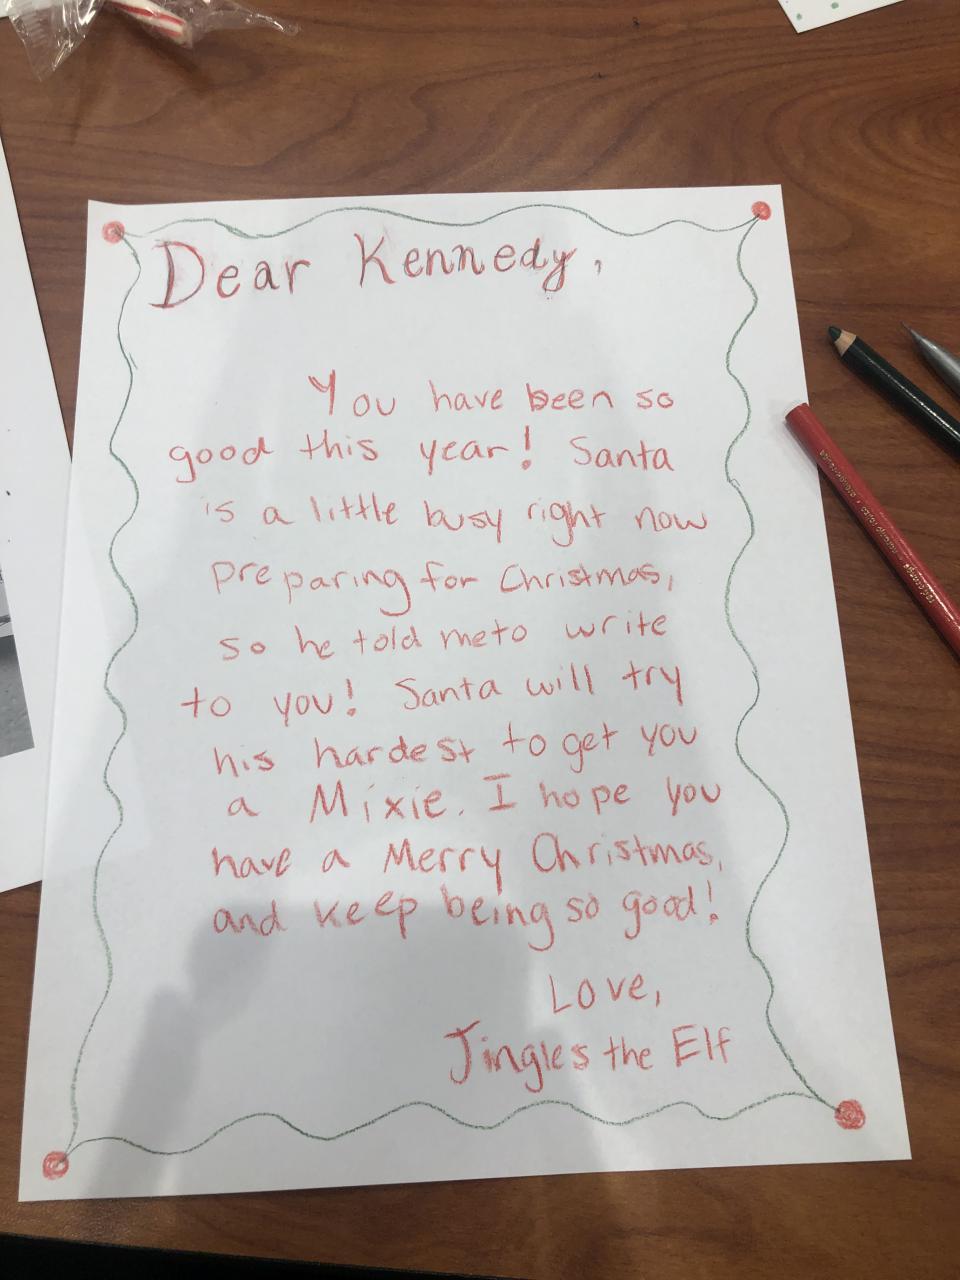 Dear Kennedy,
You have been so
good this year! Santa
is a little busy right now
preparing for Christmas,
so he told me to write
to you! Santa will try
his hardest to get you
a Mixie. I hope you
have a Merry Christmas,
and keep being so good!
Love,
Jingles the Elf